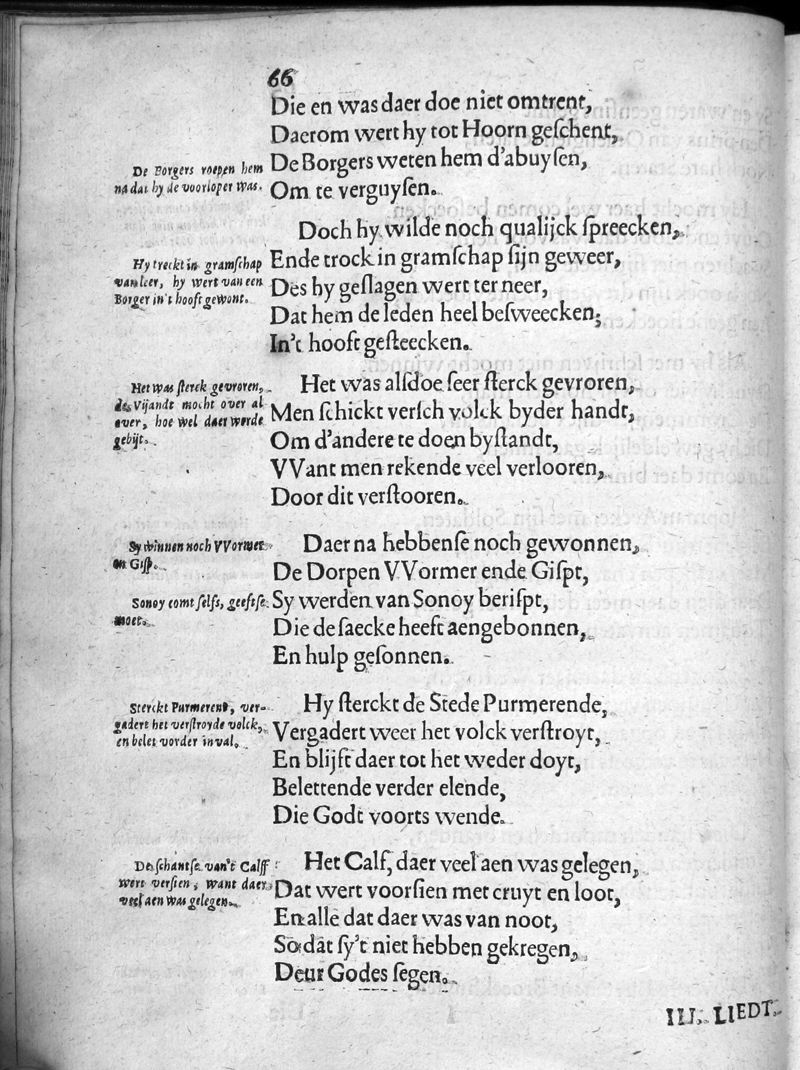 66
Die en was daer doe niet omtrent,
Daerom wert hy tot Hoorn geſchent,
De Borgers weten hem d'abuyſen,
Om te verguyſen.
De Borgers roepen hem
na dat hy de voorloper was.
Doch hy wilde noch qualijck ſpreecken,
Ende trock in gramſchap ſijn geweer,
Des hy geſlagen wert ter neer,
Dat hem de leden heel beſweecken,
In't hooft geſteecken.
Hy treckt in gramſchap
van leer, hy wert van een
Borger in't hooft gewont.
Het was alſdoe ſeer ſterck gevroren,
Men ſchickt verſch volck byder handt,
Om d'andere te doen byſtandt,
VVant men rekende veel verlooren,
Door dit verſtooren.
Het was ſterck gevroren,
de Vijandt mocht over al
over, hoe wel daer werde
gebijt.
Daer na hebbenſe noch gewonnen,
De Dorpen VVormer ende Giſpt,
Sy werden van Sonoy beriſpt,
Die de ſaecke heeft aengebonnen,
En hulp geſonnen.
Sy winnen noch VVormer
en Giſp.
Sonoy comt ſelfs, geeftſe
moet.
Hy ſterckt de Stede Purmerende,
Vergadert weer het volck verſtroyt,
En blijft daer tot het weder doyt,
Belettende verder elende,
Die Godt voorts wende.
Sterckt Purmerent, ver-
gadert het verſtroyde volck,
en belet vorder inval.
Het Calf, daer veel aen was gelegen,
Dat wert voorſien met cruyt en loot,
En alle dat daer was van noot,
So dat ſy't niet hebben gekregen,
Deur Godes ſegen.
De ſchantſe van't Calff
wert verſien, want daer
veel aen was gelegen.
III. LIEDT.